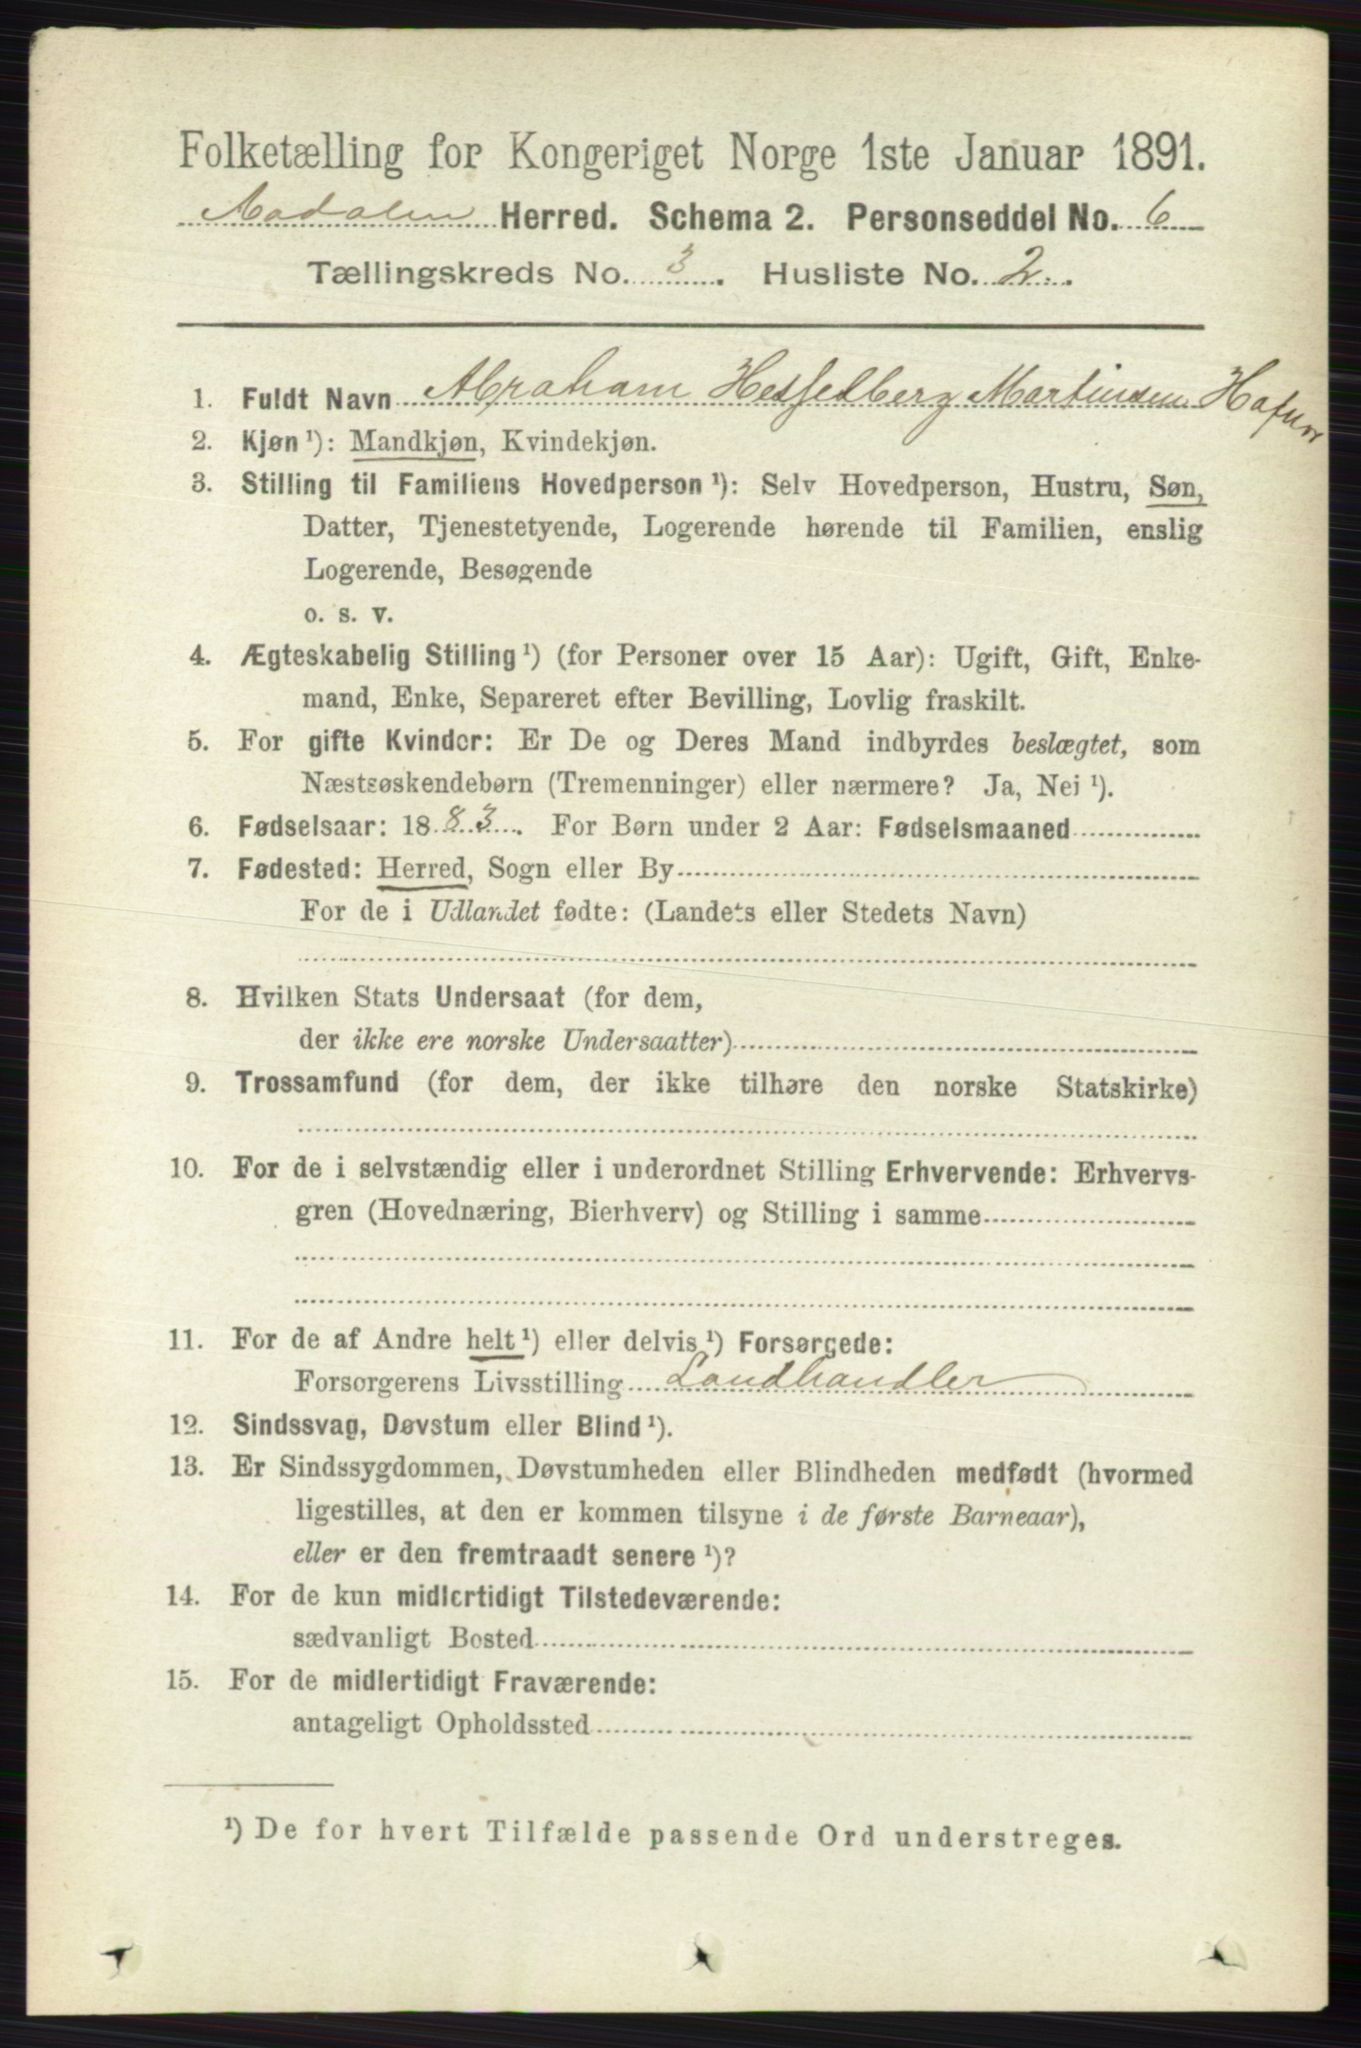 Folketælling for Kongeriget Norge 1ste Januar 1891.
Aadalen Herred. Schema 2. Personseddel No. 6
Tællingskreds No. 3. Husliste No. 2.
1. Fuldt Navn Abraham Hesselberg Martinsen
2. Kjøn ¹): Mandkjøn, Kvindekjøn.
3. Stilling til Familiens Hovedperson ¹): Selv Hovedperson, Hustru, Søn,
Datter, Tjenestetyende, Logerende hørende til Familien, enslig
Logerende, Besøgende
o. s. v.
4. Ægteskabelig Stilling ¹) (for Personer over 15 Aar): Ugift, Gift, Enke-
mand, Enke, Separeret efter Bevilling, Lovlig fraskilt.
5. For gifte Kvinder: Er De og Deres Mand indbyrdes beslægtet, som
Næstsøskendebørn (Tremenninger) eller nærmere? Ja, Nei ¹).
6. Fødselsaar: 1883. For Børn under 2 Aar: Fødselsmaaned
7. Fødested: Herred, Sogn eller By
For de i Udlandet fødte: (Landets eller Stedets Navn)
8. Hvilken Stats Undersaat (for dem,
der ikke ere norske Undersaatter)
9. Trossamfund (for dem, der ikke tilhøre den norske Statskirke)
10. For de i selvstændig eller i underordnet Stilling Erhvervende: Erhvervs-
gren (Hovednæring, Bierhverv) og Stilling i samme
11. For de af Andre helt ¹) eller delvis ¹) Forsørgede:
Forsørgerens Livsstilling Landhandler
12. Sindssvag, Døvstum eller Blind ¹).
13. Er Sindssygdommen, Døvstumheden eller Blindheden medfødt (hvormed
ligestilles, at den er kommen tilsyne i de første Barneaar),
eller er den fremtraadt senere ¹)?
14. For de kun midlertidigt Tilstedeværende:
sædvanligt Bosted
15. For de midlertidigt Fraværende:
antageligt Opholdssted
¹) De for hvert Tilfælde passende Ord understreges.